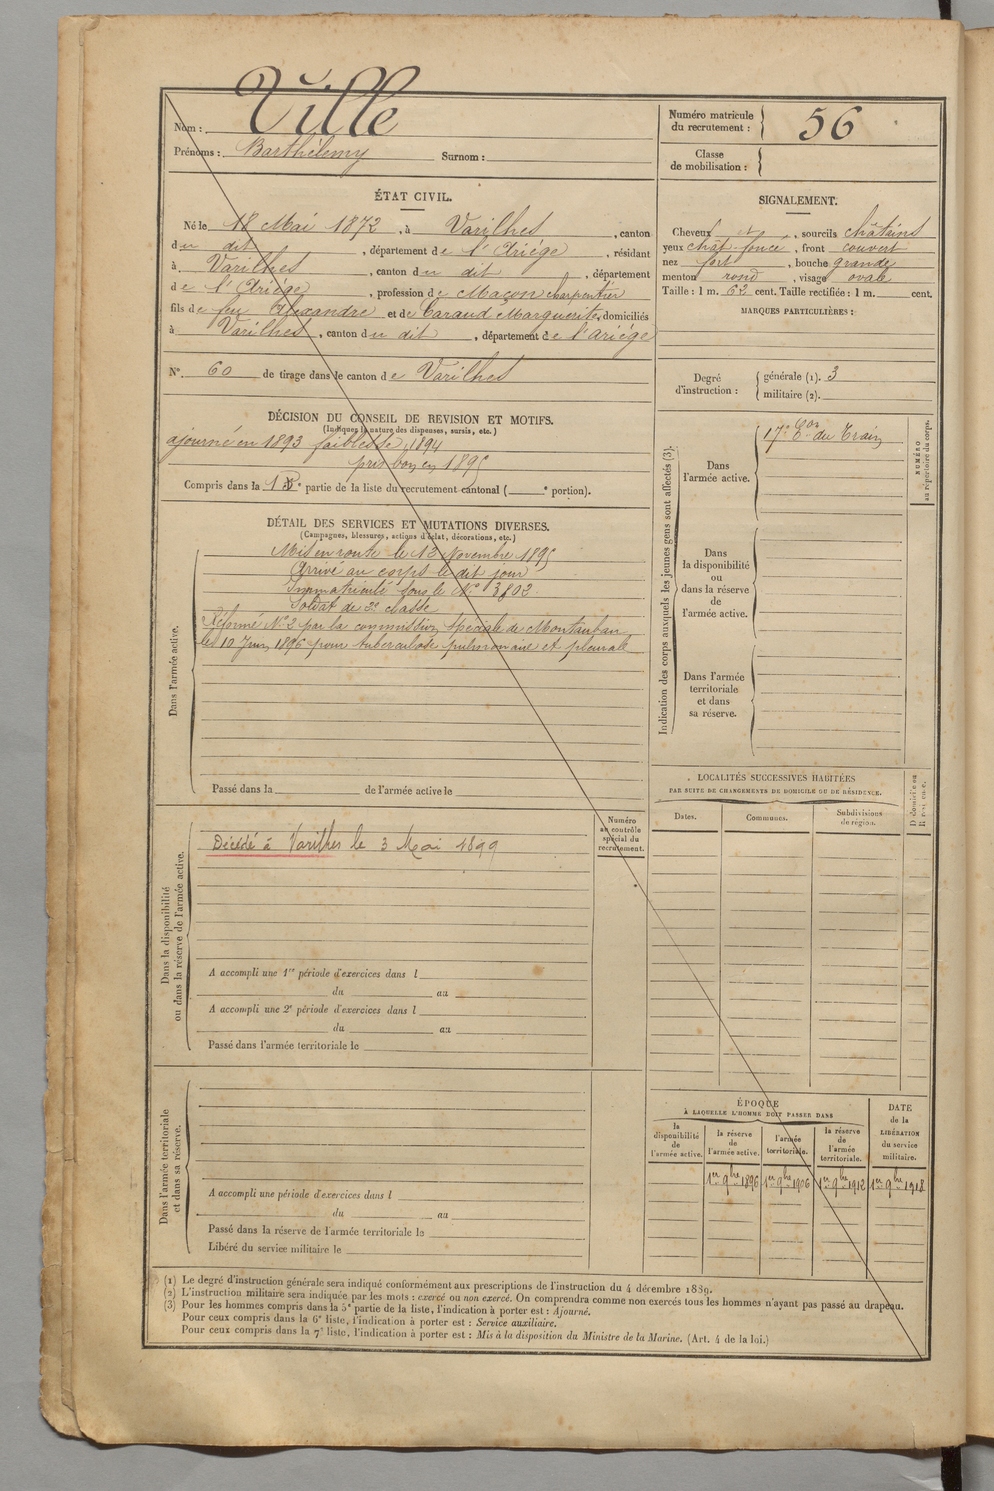 Nom : Ville
Prénoms : Barthélemy Surnom :
Numéro matricule du recrutement : 56
Classe de mobilisation :
ÉTAT CIVIL.
Né le 18 Mai 1872, à Varilhes, canton
du dit, département de l'Ariége, résidant
à Varilhes, canton du dit, département
de l'Ariége, profession de Maçon charpentier
fils de feu Alexandre et de Caraud Marguerite, domiciliés
à Varilhes, canton du dit, département de l'Ariége
N° 60 de tirage dans le canton de Varilhes
SIGNALEMENT.
Cheveux et, sourcils châtains
yeux chât foncé, front couvert
nez fort, bouche grande
menton rond, visage ovale
Taille : 1 m. 62 cent. Taille rectifiée : 1 m. cent.
MARQUES PARTICULIÈRES :
Degré d'instruction : générale (1). 3
militaire (2).
DÉCISION DU CONSEIL DE REVISION ET MOTIFS.
(Indiquer la nature des dispenses, sursis, etc.)
ajourné en 1893 faiblesse, 1894
pris bon en 1895
Compris dans la 1re partie de la liste du recrutement cantonal ( e portion).
DÉTAIL DES SERVICES ET MUTATIONS DIVERSES.
(Campagnes, blessures, actions d'éclat, décorations, etc.)
Dans l'armée active.
Mis en route le 13 Novembre 1895
Arrivé au corps le dit jour
Immatriculé sous le N° 3802.
Soldat de 2e classe
Réformé N° 2 par la commission spéciale de Montauban
le 10 Juin 1896 pour tuberculose pulmonaire et pleurale
Passé dans la de l'armée active le
Indication des corps auxquels les jeunes gens sont affectés (3).
NUMÉRO au répertoire du corps.
Dans l'armée active.
17e Eon du Train
Dans la disponibilité ou dans la réserve de l'armée active.
Dans l'armée territoriale et dans sa réserve.
LOCALITÉS SUCCESSIVES HABITÉES
PAR SUITE DE CHANGEMENTS DE DOMICILE OU DE RÉSIDENCE.
Dates. Communes. Subdivisions de région.
Numéro au contrôle spécial du recrutement.
Dans la disponibilité ou dans la réserve de l'armée active.
Décédé à Varilhes le 3 Mai 1899
A accompli une 1re période d'exercices dans l
du au
A accompli une 2e période d'exercices dans l
du au
Passé dans l'armée territoriale le
Dans l'armée territoriale et dans sa réserve.
A accompli une période d'exercices dans l
du au
Passé dans la réserve de l'armée territoriale le
Libéré du service militaire le
ÉPOQUE
À LAQUELLE L'HOMME DOIT PASSER DANS
la disponibilité de l'armée active. la réserve de l'armée active. l'armée territoriale. la réserve de l'armée territoriale.
DATE de la LIBÉRATION du service militaire.
1er 9bre 1896 1er 9bre 1906 1er 9bre 1912 1er 9bre 1918
(1) Le degré d'instruction générale sera indiqué conformément aux prescriptions de l'instruction du 4 décembre 1889.
(2) L'instruction militaire sera indiquée par les mots : exercé ou non exercé. On comprendra comme non exercés tous les hommes n'ayant pas passé au drapeau.
(3) Pour les hommes compris dans la 5e partie de la liste, l'indication à porter est : Ajourné.
Pour ceux compris dans la 6e liste, l'indication à porter est : Service auxiliaire.
Pour ceux compris dans la 7e liste, l'indication à porter est : Mis à la disposition du Ministre de la Marine. (Art. 4 de la loi.)